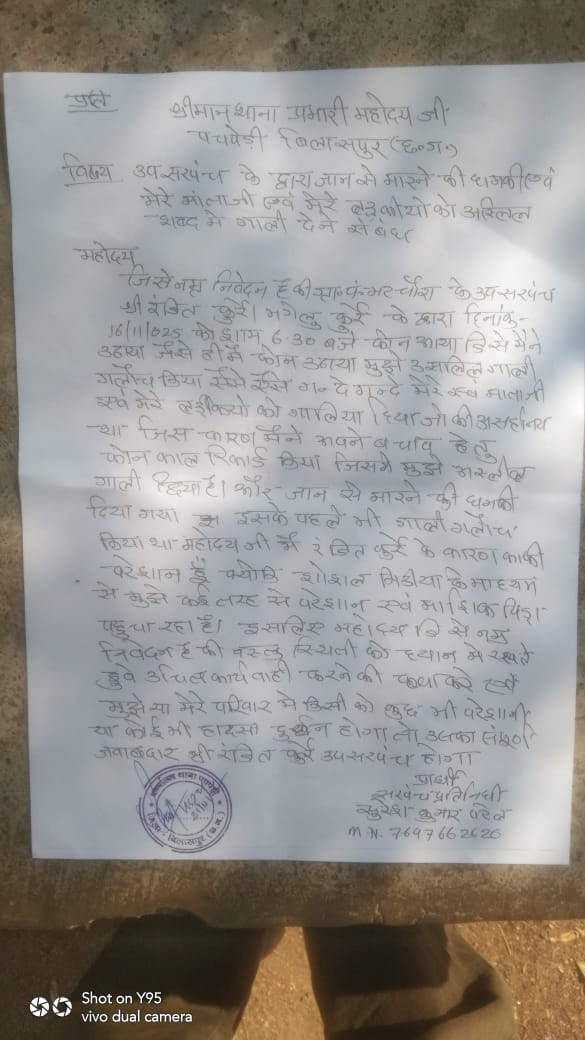 प्रति
श्रीमान थाना प्रभारी महोदय जी
पचपेड़ी बिलासपुर (छ.ग.)
विषय उपसरपंच के द्वारा जान से मारने की धमकी एवं
मेरे माताजी एवं मेरे लड़कीयो को अश्लिल
शब्द मे गाली देने संबंध
महोदय
जिसे नम्र निवेदन है की ग्रा॰पं॰ के उपसरपंच
श्री रंजित कुर्रे। मंगलु कुर्रे के द्वारा दिनांक-
16/11/025 को शाम 6.30 बजे फोन आया जिसे मैने
उठाया जैसे ही मै फोन उठाया मुझे गाली
गलौच किया ऐसे ऐसे गन्दे गन्दे मेरे एवं माताजी
एवं मेरे लड़कियो को गालिया दिया जो की असहनिय
था जिस कारण मैने अपने बचाव हेतु
फोन काल रिकार्ड किया जिसमे मुझे अस्लील
गाली दिया है। और जान से मारने की धमकी
दिया गया इसके पहले भी गाली गलौच
किया था महोदय जी मै रंजित कुर्रे के कारण काफी
परेशान हूँ क्योकि शोशल मिडीया के माध्यम
से मुझे कई तरह से परेशान एवं पिड़ा
पहुचा रहा है। इसलिए महोदय जि से नम्र
निवेदन है की वस्तु स्थिती को ध्यान मे रखते
हुवे उचित कार्यवाही करने की कृपा करे एवं
मुझे या मेरे परिवार मे किसी को कुछ भी परेशानी
या कोई भी हादसा होगा तो उसका संपूर्ण
जवाबदार श्री रंजित कुर्रे उपसरपंच होगा
प्रार्थी
सरपंच प्रतिनिधी
सुरेश कुमार पटेल
M.N. 7697662626
थाना पचपेड़ी
जिला-बिलासपुर (छ.ग.)
Shot on Y95
vivo dual camera